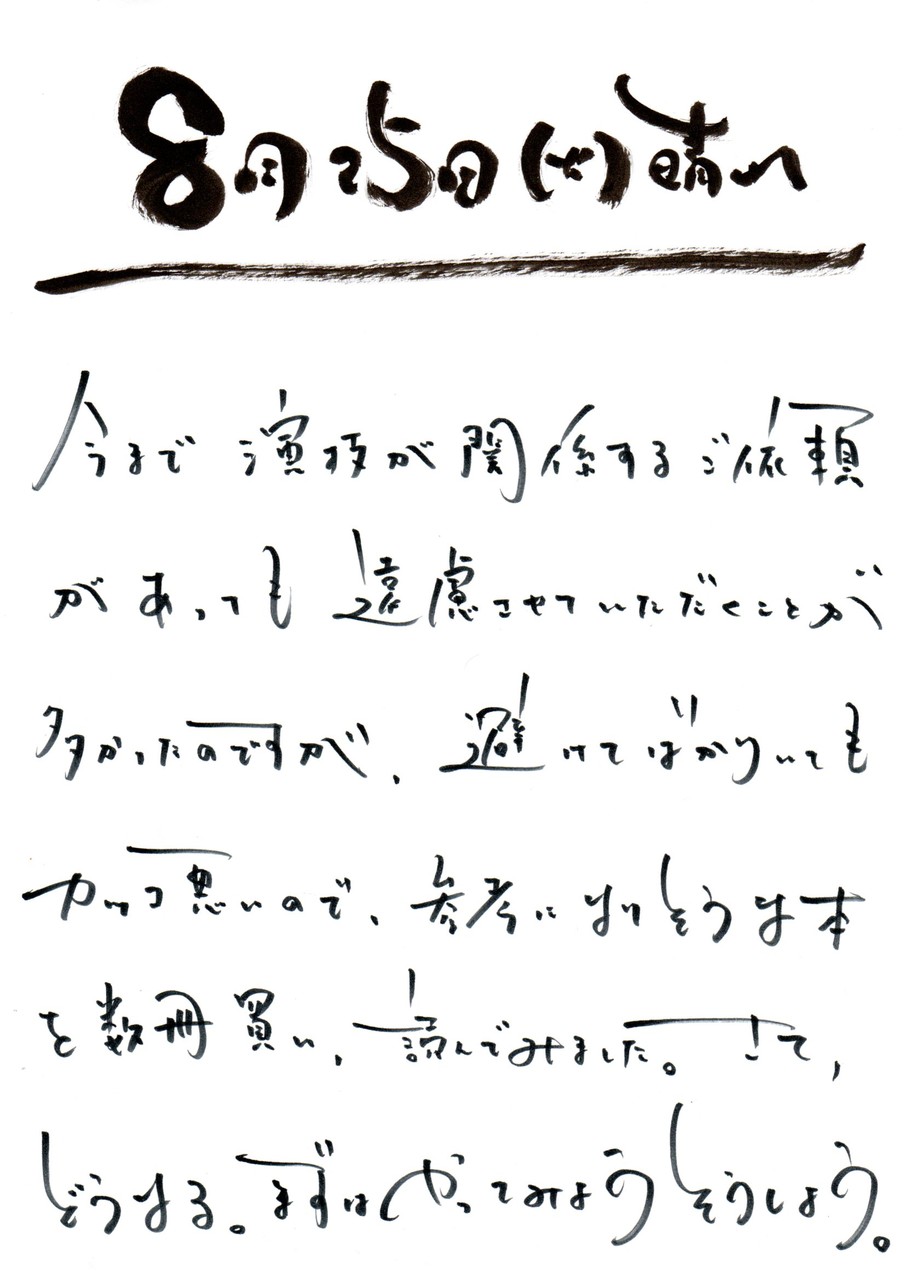 8月25日(火)晴れ
今まで演技が関係するご依頼
があっても遠慮させていただくことが
多かったのですが、避けてばかりいても
カッコ悪いので、参考になりそうな本
を数冊買い、読んでみました。さて、
どうなる。まずはやってみようそうしよう。